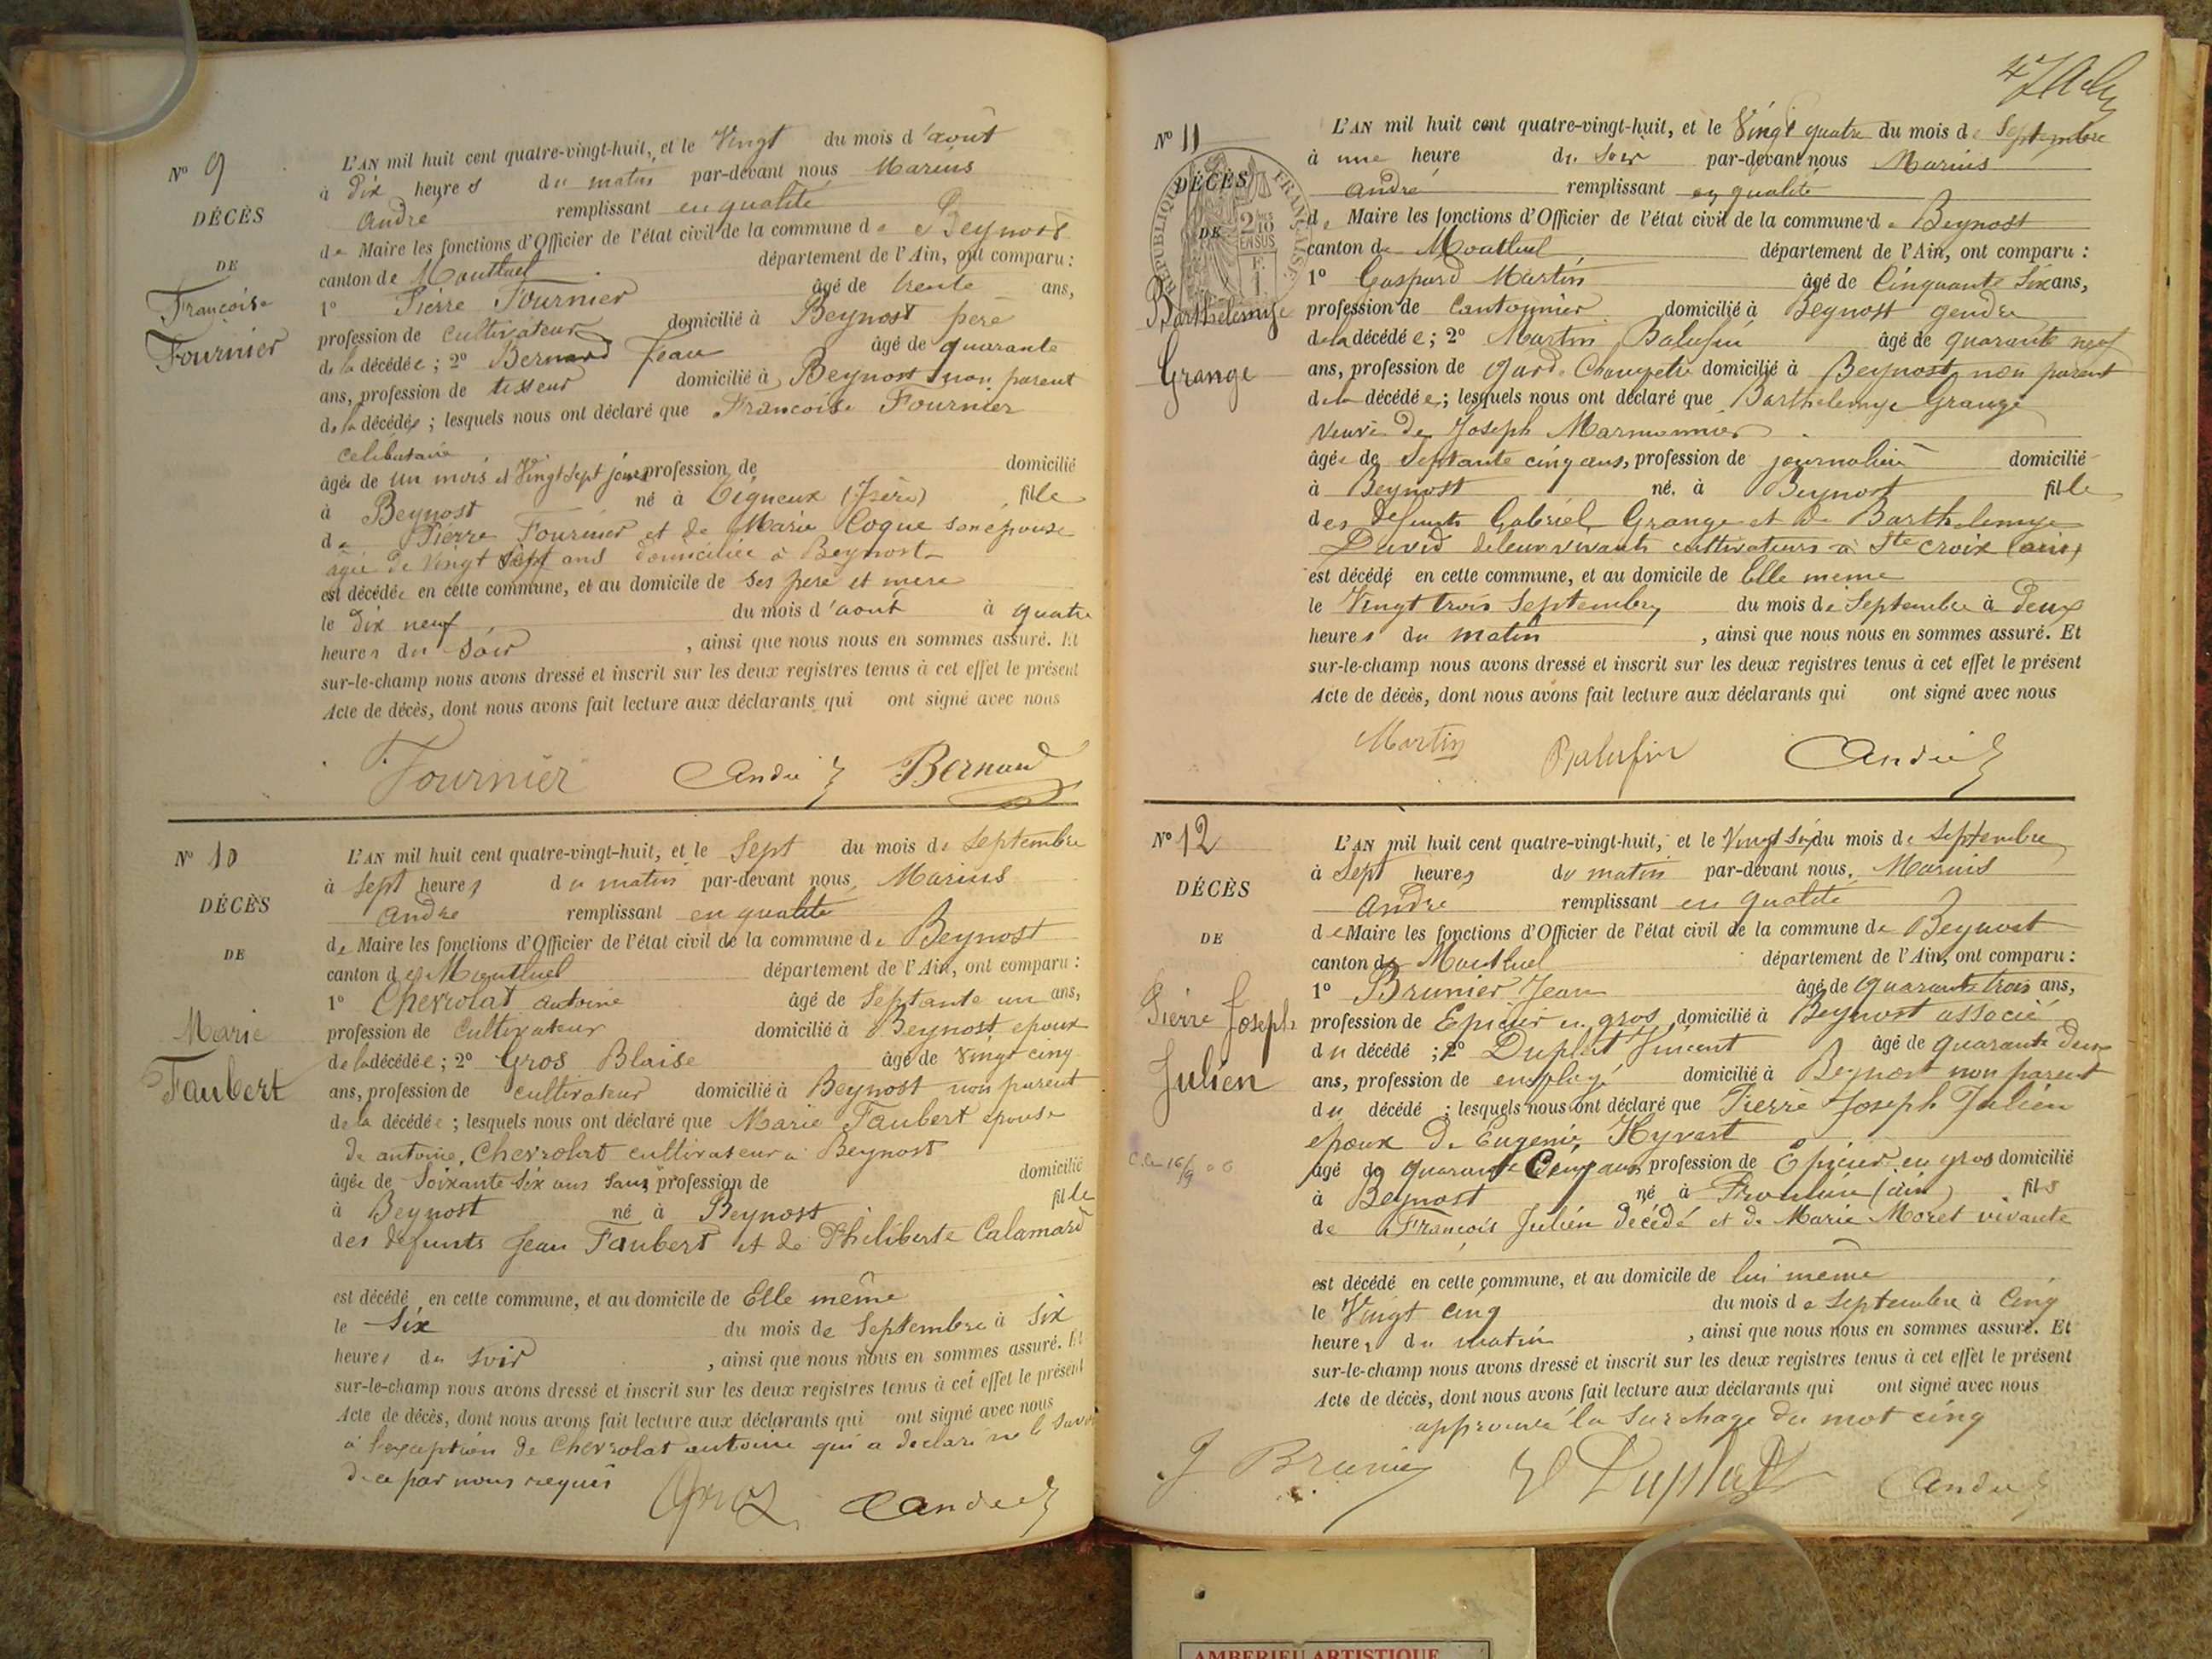 N° 9
DÉCÈS
DE
Françoise
Fournier
L'AN mil huit cent quatre-vingt-huit, et le Vingt du mois d'août
à Dix heures du matin par-devant nous Marius
andré remplissant en qualité
de Maire les fonctions d'Officier de l'état civil de la commune de Beynost
canton de Montluel département de l'Ain, ont comparu :
1° Pierre Fournier âgé de trente ans,
profession de cultivateur domicilié à Beynost pere
de la décédée ; 2° Bernard Jean âgé de quarante
ans, profession de tisseur domicilié à Beynost non parent
de la décédée ; lesquels nous ont déclaré que Francoise Fournier
celibataire
âgée de un mois et Vingt sept jours profession de domicilié
à Beynost né à Tigneux (Isère) fille
de Pierre Fournier et de Marie Coque son épouse
agée de Vingt sept ans domiciliée à Beynost
est décédée en cette commune, et au domicile de ses pere et mere
le dix neuf du mois d'août à quatre
heures du soir , ainsi que nous nous en sommes assuré. Et
sur-le-champ nous avons dressé et inscrit sur les deux registres tenus à cet effet le présent
Acte de décès, dont nous avons fait lecture aux déclarants qui ont signé avec nous
Fournier André Bernard
N° 10
DÉCÈS
DE
Marie
Faubert
L'AN mil huit cent quatre-vingt-huit, et le Sept du mois de Septembre
à Sept heures du matin par-devant nous Marius
andre remplissant en qualité
de Maire les fonctions d'Officier de l'état civil de la commune de Beynost
canton de Montluel département de l'Ain, ont comparu :
1° Chevrolat antoine âgé de Septante un ans,
profession de Cultivateur domicilié à Beynost epoux
de la décédée ; 2° Gros Blaise âgé de Vingt cinq
ans, profession de cultivateur domicilié à Beynost non parent
de la décédée ; lesquels nous ont déclaré que Marie Faubert epouse
de antoine Chevrolat cultivateur à Beynost
âgée de Soixante Six ans sans profession de domicilié
à Beynost né à Beynost fille
des defunts Jean Faubert et de Philiberte Calamard
est décédé en cette commune, et au domicile de Elle même
le Six du mois de Septembre à Six
heures du Soir , ainsi que nous nous en sommes assuré. Et
sur-le-champ nous avons dressé et inscrit sur les deux registres tenus à cet effet le présent
Acte de décès, dont nous avons fait lecture aux déclarants qui ont signé avec nous
à l'exception de Chevrolat antoine qui a declaré ne le savoir
de ce par nous requis
Gros André
N° 11
DÉCÈS
DE
RÉPUBLIQUE FRANÇAISE
Barthelemye
Grange
L'AN mil huit cent quatre-vingt-huit, et le Vingt quatre du mois de Septembre
à une heure du Soir par-devant nous Marius
andré remplissant en qualité
de Maire les fonctions d'Officier de l'état civil de la commune de Beynost
canton de Montluel département de l'Ain, ont comparu :
1° Gaspard Martin âgé de Cinquante Six ans,
profession de Cantonnier domicilié à Beynost gendre
de la décédée ; 2° Martin Balufin âgé de quarante neuf
ans, profession de garde Champetre domicilié à Beynost non parent
de la décédée ; lesquels nous ont déclaré que Barthelemye Grange
Veuve de Joseph Marmonnier
âgée de Septante cinq ans, profession de journalière domicilié
à Beynost né à Beynost fille
des defunts Gabriel Grange et De Barthelemye
David de leur vivants cultivateurs à Ste croix (ain)
est décédé en cette commune, et au domicile de Elle meme
le Vingt trois Septembre du mois de Septembre à Deux
heures du matin , ainsi que nous nous en sommes assuré. Et
sur-le-champ nous avons dressé et inscrit sur les deux registres tenus à cet effet le présent
Acte de décès, dont nous avons fait lecture aux déclarants qui ont signé avec nous
Martin Balufin André
N° 12
DÉCÈS
DE
Pierre Joseph
Julien
L'AN mil huit cent quatre-vingt-huit, et le Vingt Six du mois de Septembre
à Sept heures du matin par-devant nous, Marius
André remplissant en qualité
de Maire les fonctions d'Officier de l'état civil de la commune de Beynost
canton de Montluel département de l'Ain, ont comparu :
1° Brunier Jean âgé de quarante trois ans,
profession de Epicier en gros domicilié à Beynost associé
du décédé ; 2° Duplat Vincent âgé de quarante deux
ans, profession de employé domicilié à Beynost non parent
du décédé ; lesquels nous ont déclaré que Pierre Joseph Julien
epoux De Eugenie Hyvert
âgé de quarante Cinq ans profession de Epicier en gros domicilié
à Beynost né à (ain) fils
de François Julien décédé et de Marie Moret vivante
est décédé en cette commune, et au domicile de lui même
le Vingt cinq du mois de Septembre à Cinq
heures du matin , ainsi que nous nous en sommes assuré. Et
sur-le-champ nous avons dressé et inscrit sur les deux registres tenus à cet effet le présent
Acte de décès, dont nous avons fait lecture aux déclarants qui ont signé avec nous
approuvé la Surchage du mot cinq
J Brunier V Duplat André
AMBERIEU ARTISTIQUE